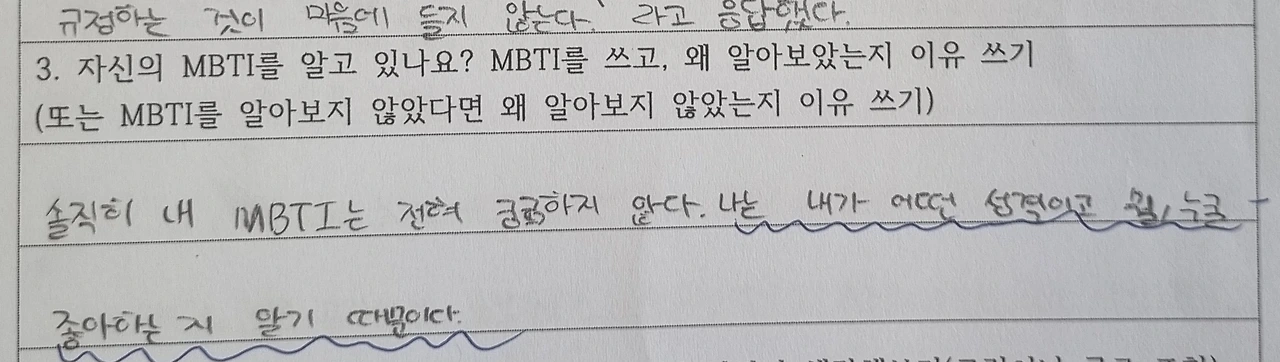 규정하는 것이 마음에 들지 않는다. 라고 응답했다.
3. 자신의 MBTI를 알고 있나요? MBTI를 쓰고, 왜 알아보았는지 이유 쓰기
(또는 MBTI를 알아보지 않았다면 왜 알아보지 않았는지 이유 쓰기)
솔직히 내 MBTI는 전혀 궁금하지 않다. 나는 내가 어떤 성격이고 뭘, 누굴
좋아하는 지 알기 때문이다.